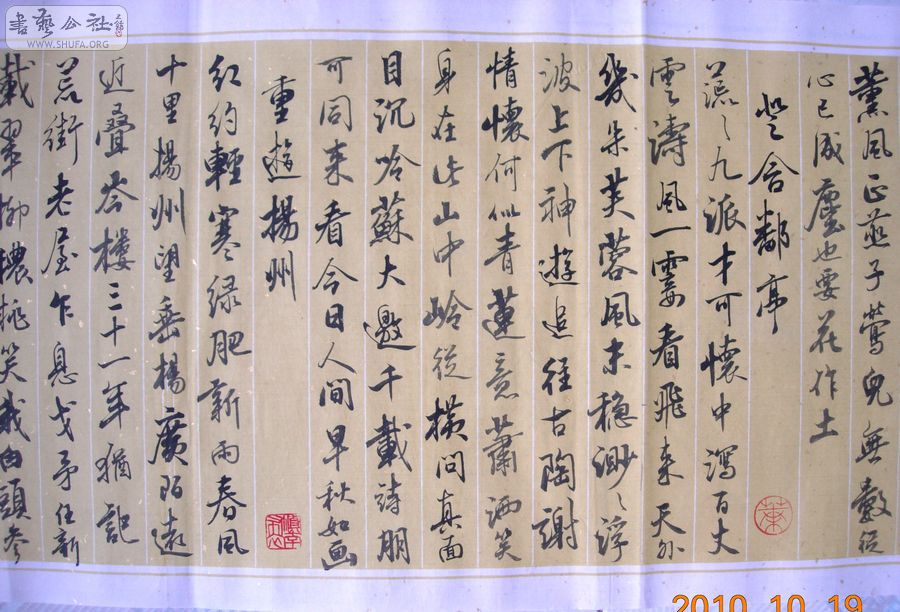 書藝公社
WWW.SHUFA.ORG
薰風正燕子鶯兒無數從
心已成塵也要花作土
登含鄱亭
茫〻九派才可懷中瀉百丈
雲濤風一霎看飛来天外
幾朵芙蓉風未穩渺〻浮
波上下神遊追往古陶謝
情懷何似青蓮意蕭洒笑
身在此山中岭從橫問真面
目沉吟蘇大邀千載詩朋
可同来看今日人間早秋如画
重遊揚州
红約輕寒绿肥新雨春风
十里揚州望垂楊廣陌遠
近疊岑樓三十一年猶記
荒街老屋乍息戈矛任新
載翠柳桃笑我白頭
2010 10 19